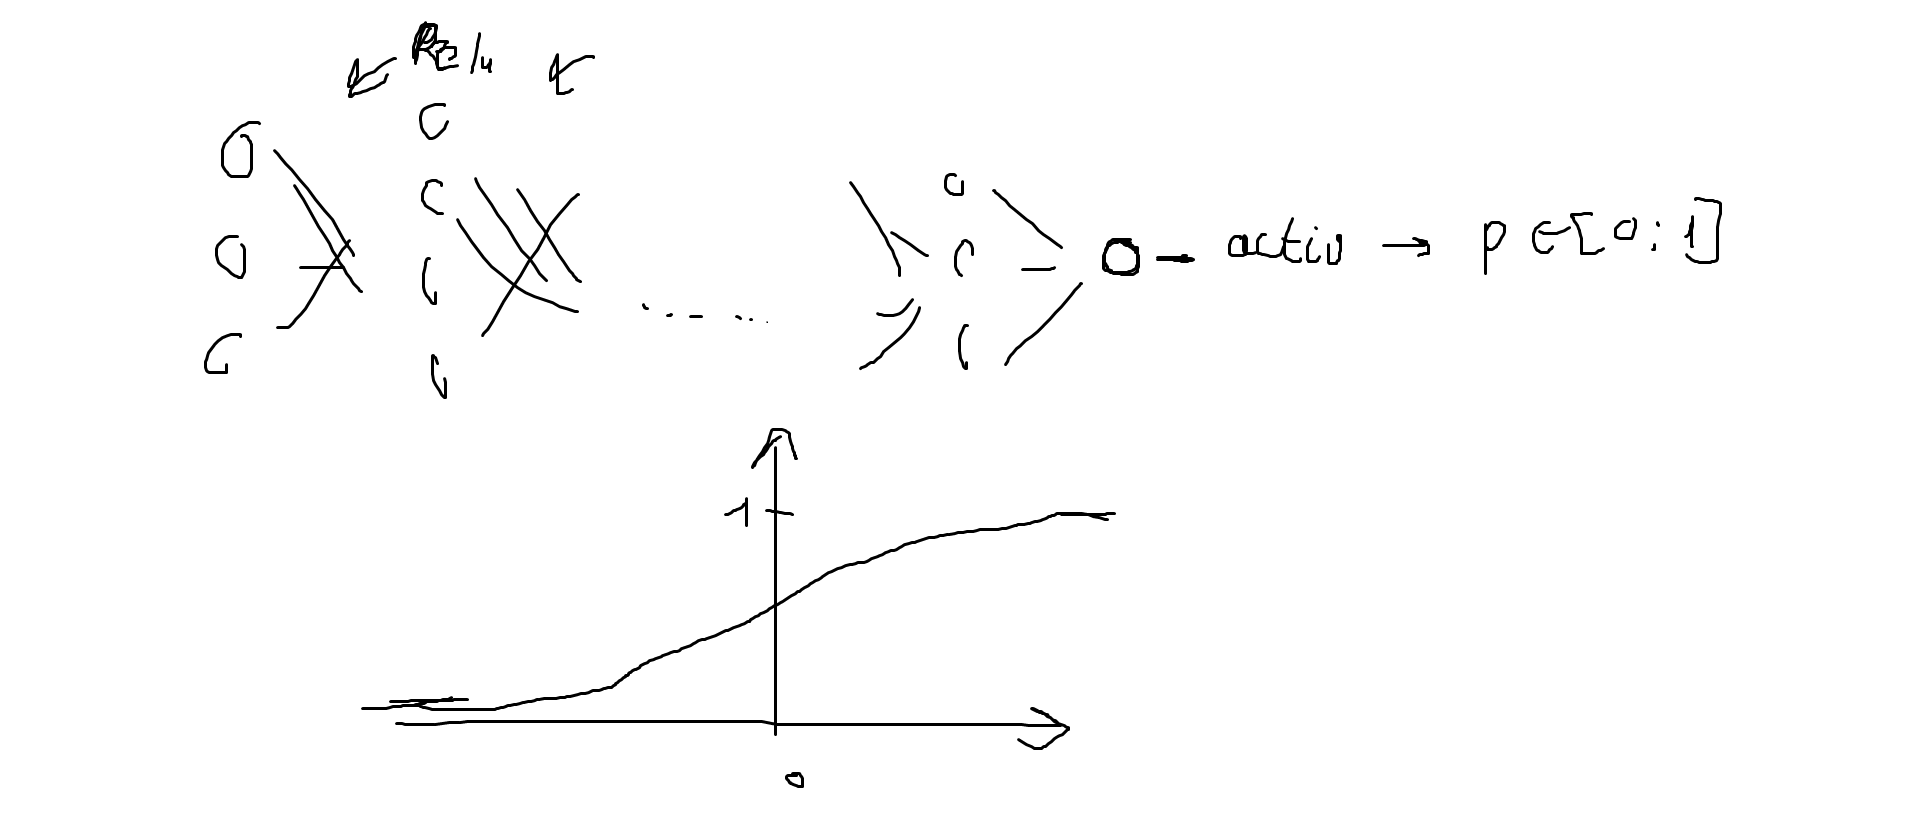 Relu
activ → p ∈ [0; 1]
1
0